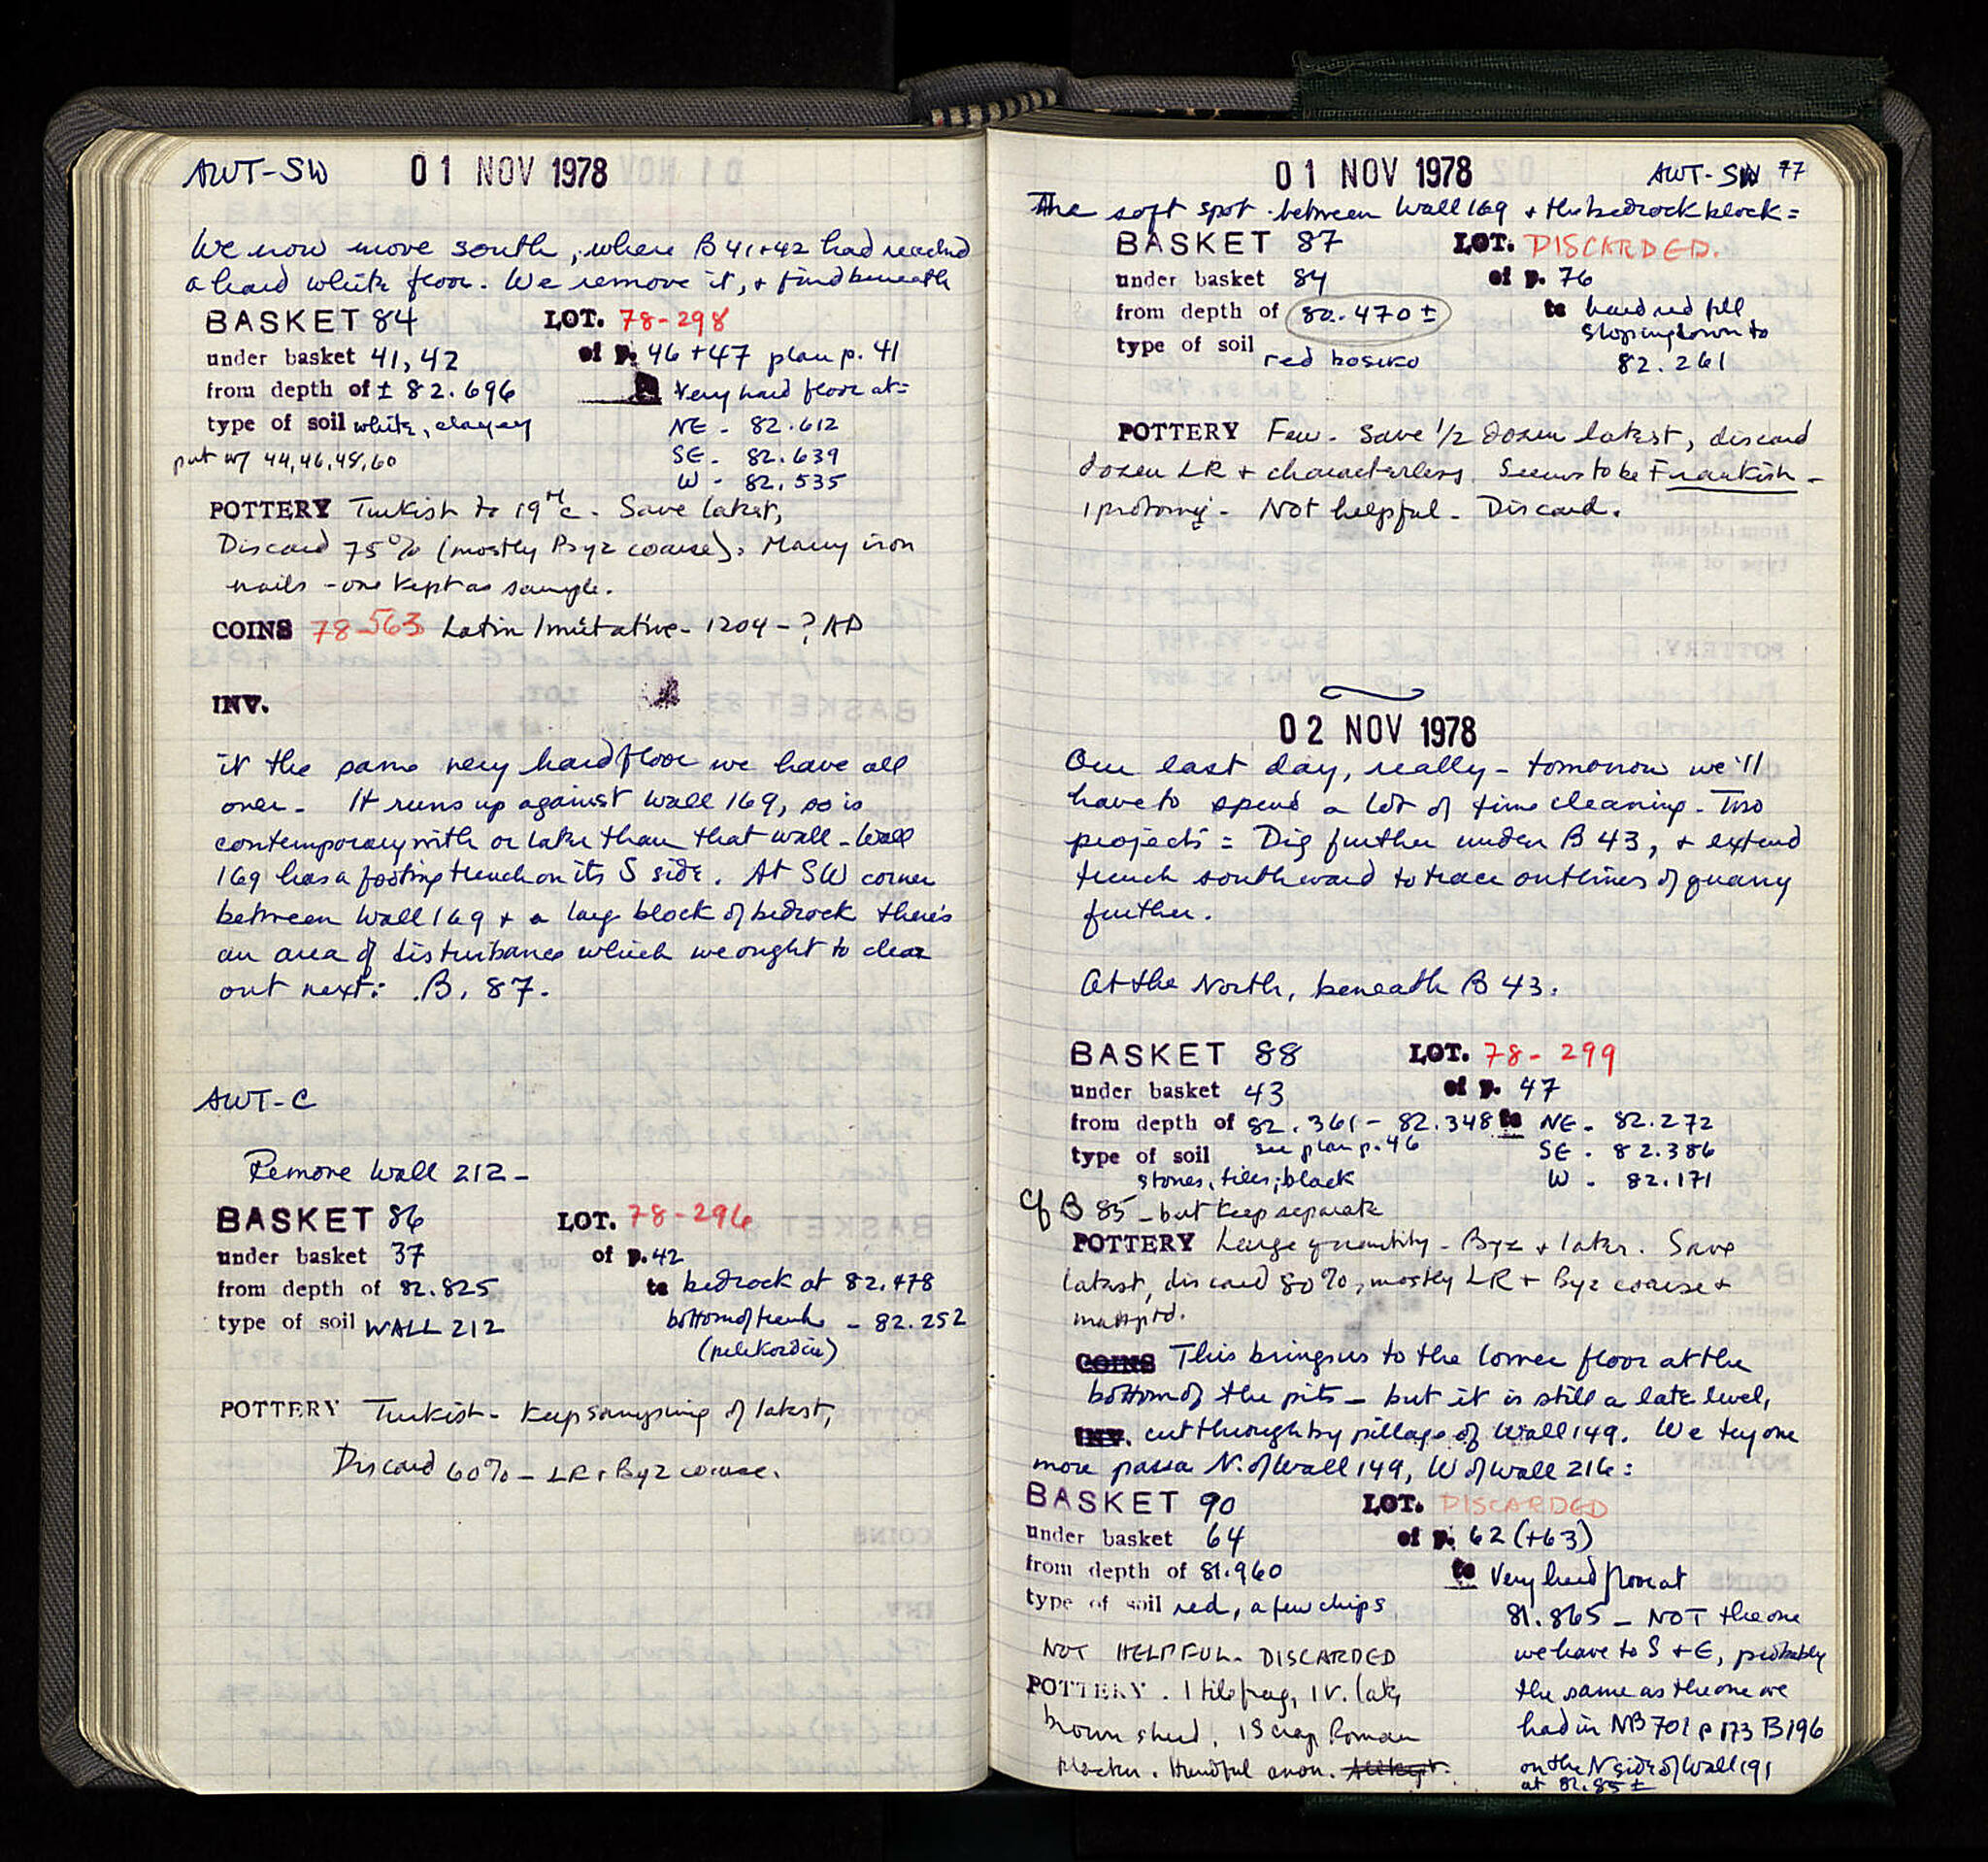 AWT-SW 01 NOV 1978
We now move south, where B 41+42 had reached
a hard white floor. We remove it, + find beneath
BASKET 84 LOT. 78-298
under basket 41, 42 of p. 46+47 plan p. 41
from depth of ± 82.696 Very hard floor at=
type of soil white, clayey NE - 82.612
put w/ 44, 46, 48, 60 SE - 82.639
W - 82.535
POTTERY Turkish to 19th c. Save latest,
Discard 75% (mostly Byz coarse). Many iron
nails - one kept as sample.
COINS 78-563 Latin Imitative - 1204 - ? AD
INV.
it the same very hard floor we have all
over. It runs up against Wall 169, so is
contemporary with or later than that wall - Wall
169 has a footing trench on its S side. At SW corner
between Wall 169 + a large block of bedrock there's
an area of disturbance which we ought to clear
out next: B. 87.
AWT-C
Remove Wall 212 -
BASKET 86 LOT. 78-296
under basket 37 of p. 42
from depth of 82.825 to bedrock at 82.478
type of soil WALL 212 bottom of trench - 82.252
POTTERY Turkish - Keep sampling of latest,
Discard 60% - LR + Byz coarse.
01 NOV 1978 AWT-SW 77
The soft spot between Wall 169 + the bedrock block =
BASKET 87 LOT. DISCARDED.
under basket 84 of p. 76
from depth of 82.470 ± to hard red fill
type of soil red sloping down to
82.261
POTTERY Few. Save 1/2 dozen latest, discard
dozen LR + characterless. Seems to be Frankish -
1 protomaj - Not helpful - Discard.
02 NOV 1978
Our last day, really - tomorrow we'll
have to spend a lot of time cleaning. Two
projects = Dig further under B 43, + extend
trench southward to trace outlines of quarry
further.
At the North, beneath B 43:
BASKET 88 LOT. 78-299
under basket 43 of p. 47
from depth of 82.361 - 82.348 to NE - 82.272
type of soil see plan p. 46 SE - 82.386
stones, tiles; black W - 82.171
cf B 85 - but keep separate
POTTERY Large quantity - Byz + later. Save
latest, discard 80%, mostly LR + Byz coarse +
COINS This brings us to the lower floor at the
bottom of the pits - but it is still a late level,
INV. cut through by pillage of Wall 149. We try one
more passa N. of Wall 149, W of Wall 216:
BASKET 90 LOT. DISCARDED
under basket 64 of p. 62 (+63)
from depth of 81.960 to Very hard floor at
type of soil red, a few chips 81.865 - NOT the one
NOT HELPFUL - DISCARDED we have to S + E, probably
POTTERY. 1 tile frag, 1 v. late the same as the one we
brown sherd, 1 scrap Roman had in NB 701 p 173 B 196
Handful anon. on the N side of Wall 191
at 81.85 ±